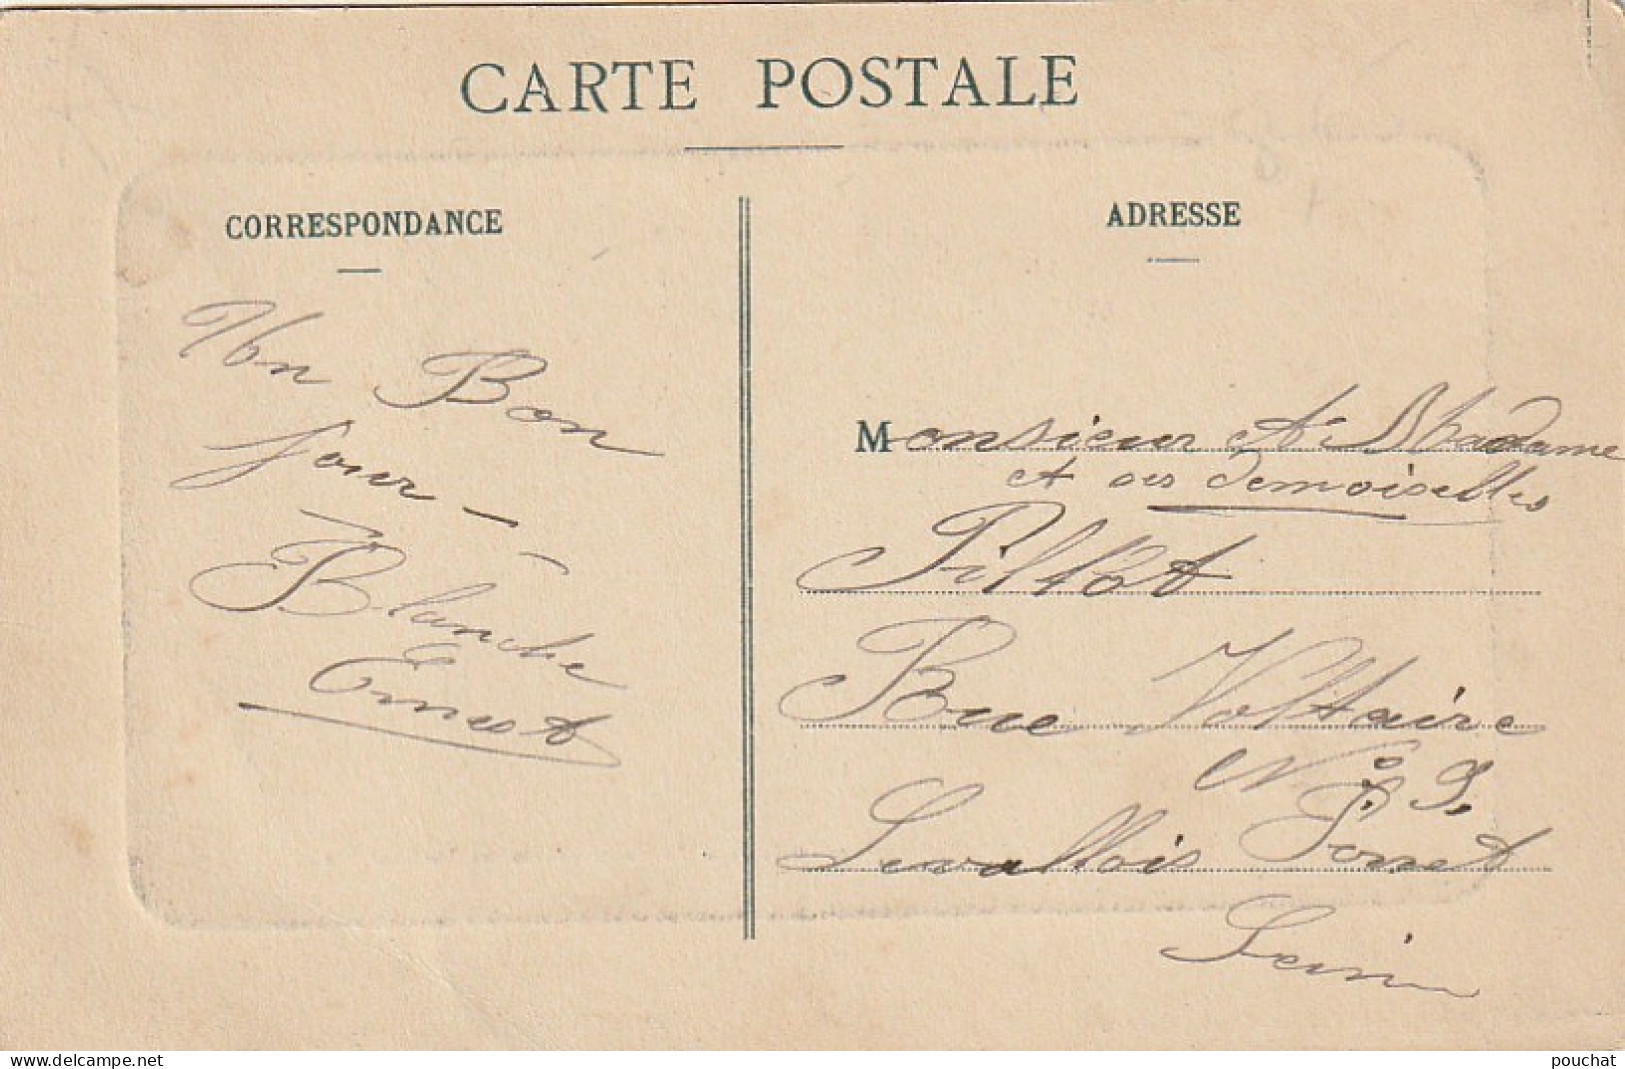 CARTE POSTALE
CORRESPONDANCE
Un Bon
jour —
Blanche
Ernest
ADRESSE
Monsieur et Madame
et ses demoiselles
Pillot
Rue Voltaire
N° 9,
Levallois Perret
Seine
www.delcampe.net
pouchat